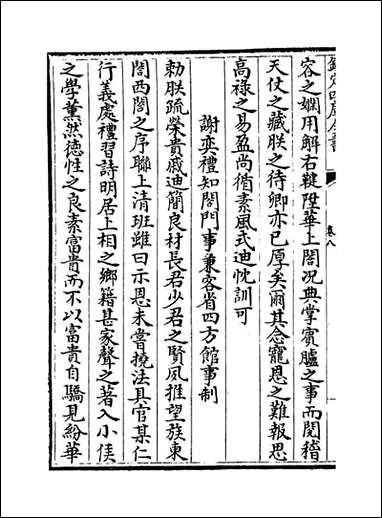 欽定四庫全書
卷八
容之嫺用解右鞬陞華上閤况典掌賓臚之事而閱稽
天仗之藏朕之待卿亦已厚矣爾其念寵恩之難報思
高祿之易盈尚循素風式迪忱訓可
謝奕禮知閤門事兼客省四方館事制
勅朕疏榮貴戚迪簡良材長君少君之賢夙推望族東
閤西閤之序聯上清班雖曰示恩未嘗撓法具官某仁
行義處禮習詩明居上相之鄉籍甚家聲之著入小侯
之學薫然徳性之良素富貴而不以富貴自驕見紛華